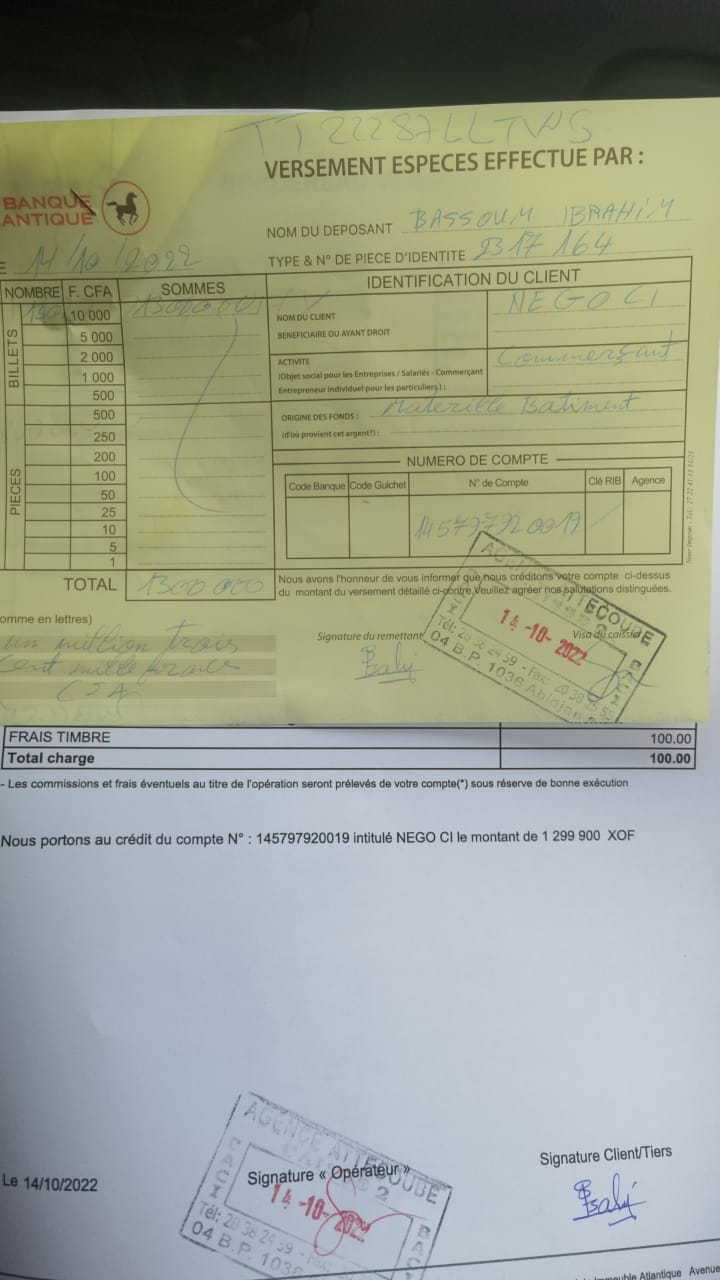 TT22287LLTWS
VERSEMENT ESPECES EFFECTUE PAR :
BANQUE
ANTIQUE
NOM DU DEPOSANT BASSOUM IBRAHIM
TYPE & N° DE PIECE D'IDENTITE 2317164
E 14/10/2022
NOMBRE F. CFA SOMMES
IDENTIFICATION DU CLIENT
BILLETS
130 10 000 1300000
5 000
2 000
1 000
500
PIECES
500
250
200
100
50
25
10
5
1
TOTAL 1300 000
NOM DU CLIENT NEGO CI
BENEFICIAIRE OU AYANT DROIT
ACTIVITE Commerçant
(Objet social pour les Entreprises / Salariés - Commerçant
Entrepreneur individuel pour les particuliers) :
ORIGINE DES FONDS : Materille Batiment
(d'où provient cet argent?) :
NUMERO DE COMPTE
Code Banque Code Guichet N° de Compte Clé RIB Agence
145797920019
Nous avons l'honneur de vous informer que nous créditons votre compte ci-dessus
du montant du versement détaillé ci-contre. Veuillez agréer nos salutations distinguées.
omme en lettres)
un million trois
cent mille francs
CFA
Signature du remettant
Visa du caissier
AGENCE ATTECOUBE
14-10-2022
Tél: 20 38 24 59 - Fax: 20 38 25 55
04 B.P. 1036 Abidjan
BACI
FRAIS TIMBRE 100.00
Total charge 100.00
- Les commissions et frais éventuels au titre de l'opération seront prélevés de votre compte(*) sous réserve de bonne exécution
Nous portons au crédit du compte N° : 145797920019 intitulé NEGO CI le montant de 1 299 900 XOF
Le 14/10/2022
Signature « Opérateur »
AGENCE ATTECOUBE
2
14-10-2022
Tél: 20 38 24 59
04 B.P. 1036
BACI
Signature Client/Tiers
Immeuble Atlantique Avenue